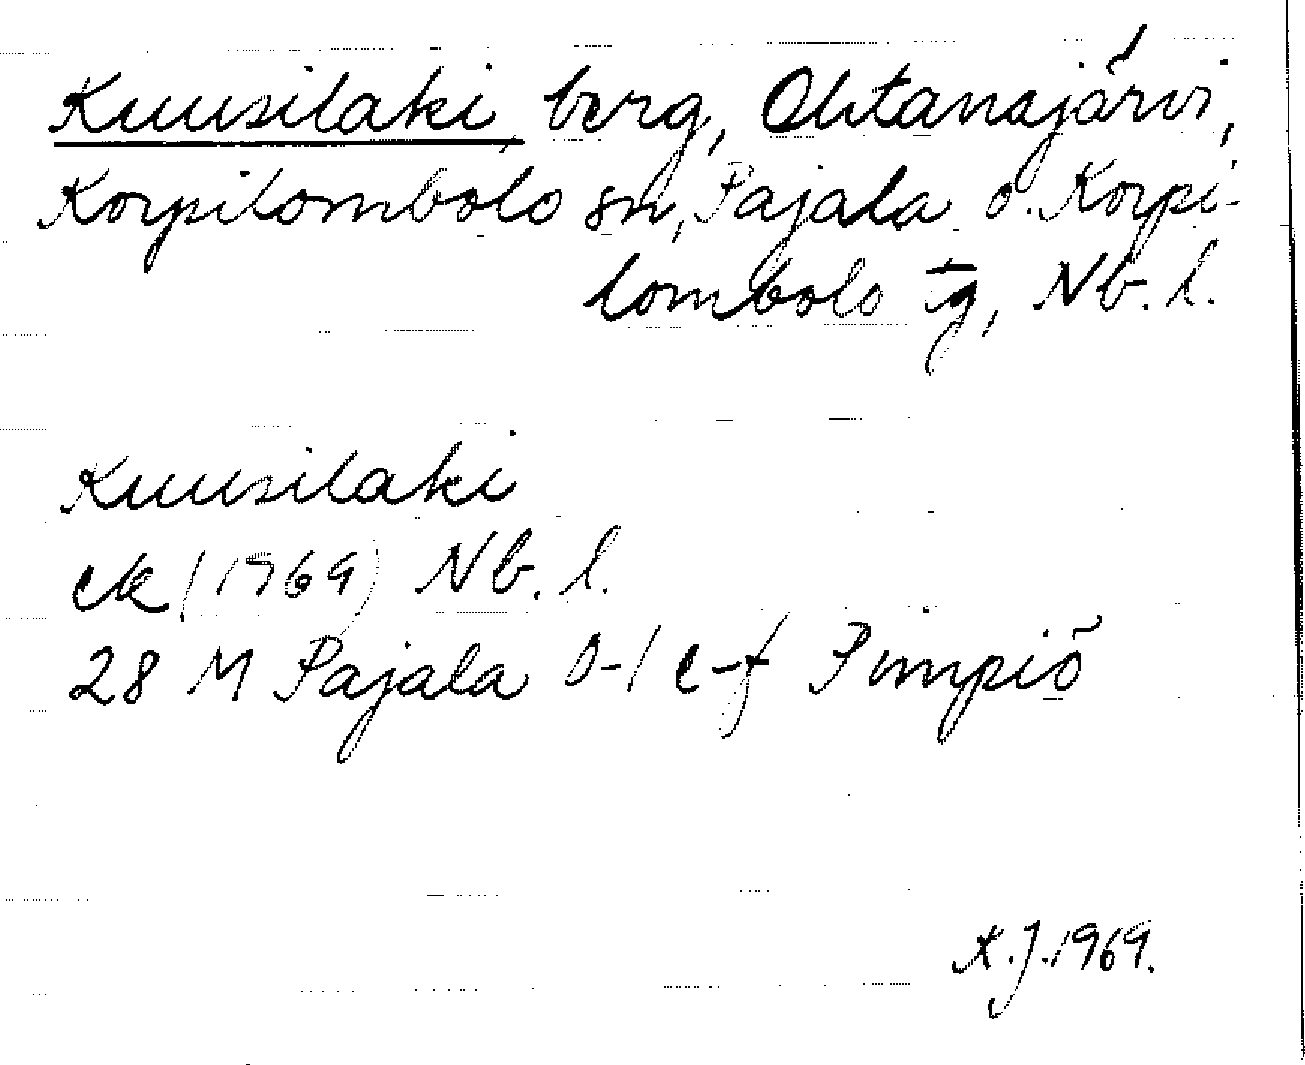 Kuusilaki, berg, Ohtanajärvi,
Korpilombolo sn, Pajala o. Korpi-
lombolo tg, Nb. l.
Kuusilaki
ek (1969) Nb. l.
28 M Pajala 0-1 e-f Pimpiö
K.J. 1969.